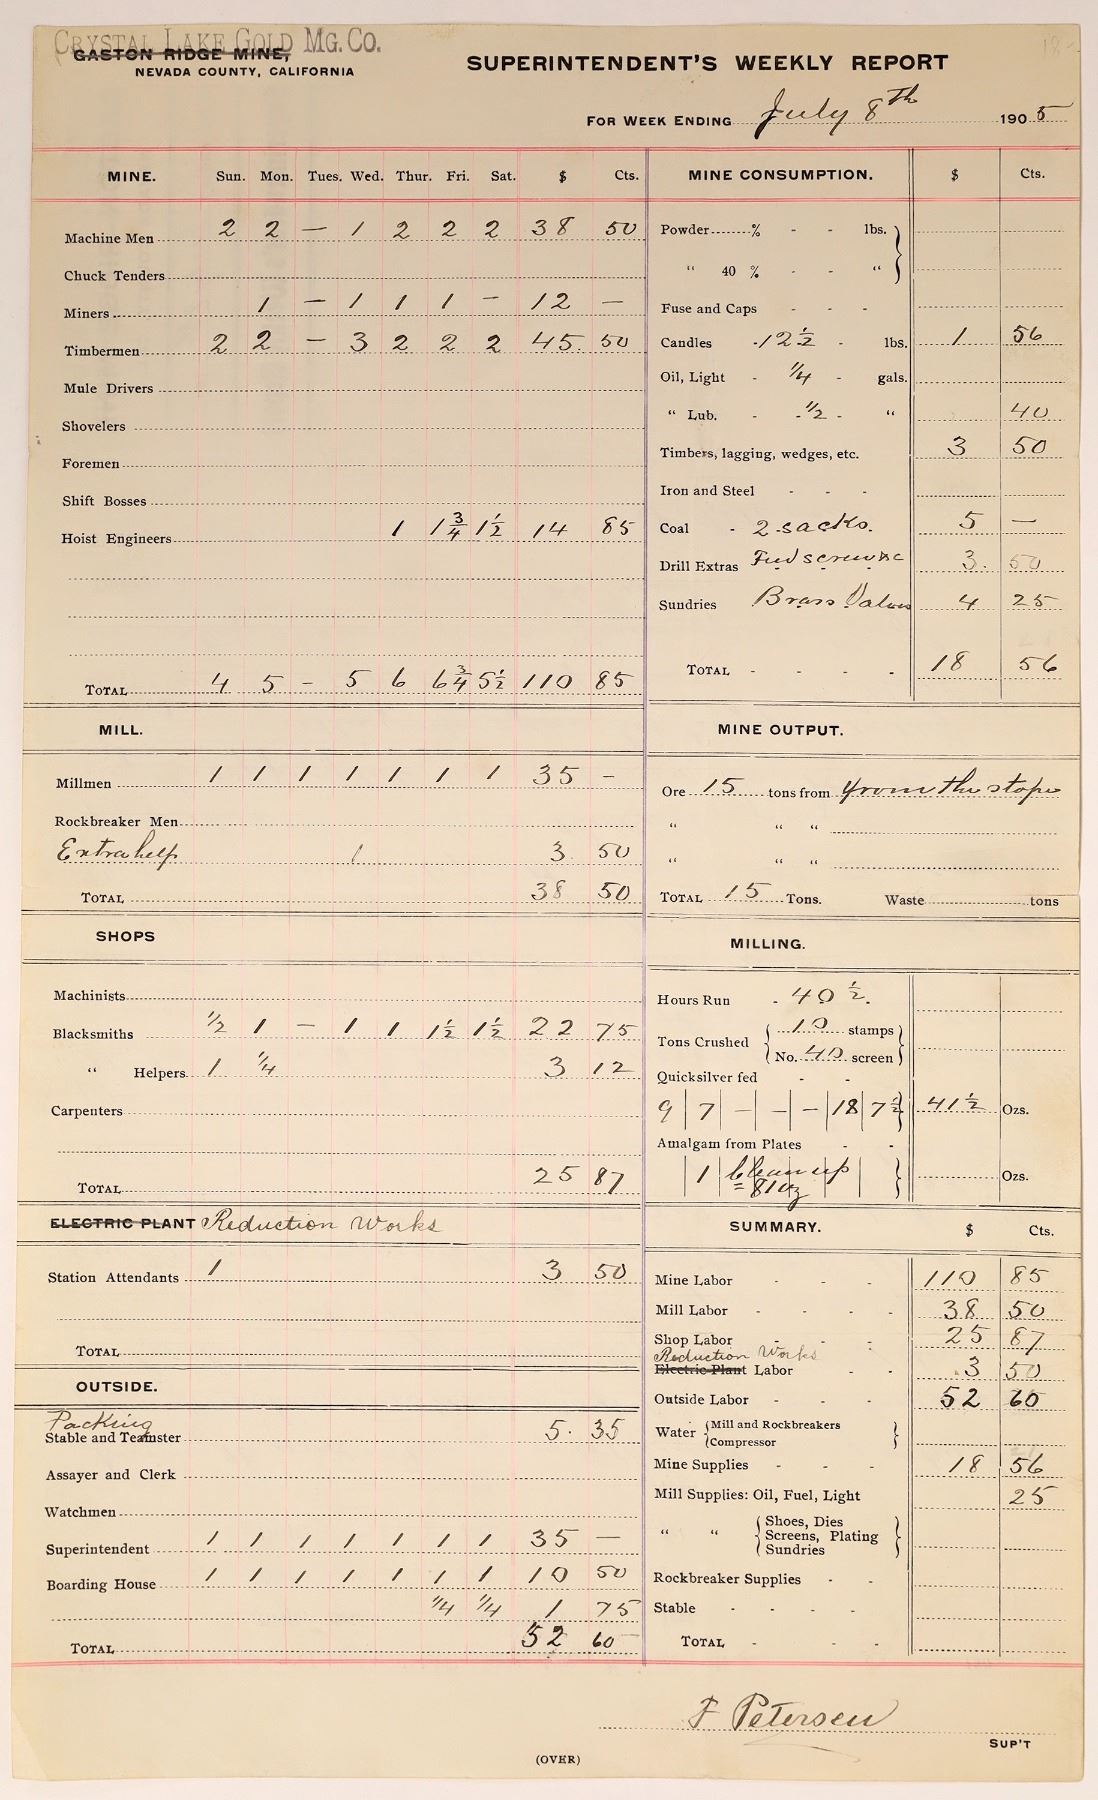 CRYSTAL LAKE GOLD MG. CO.
GASTON RIDGE MINE,
NEVADA COUNTY, CALIFORNIA
SUPERINTENDENT'S WEEKLY REPORT
FOR WEEK ENDING July 8th 1905
MINE. Sun. Mon. Tues. Wed. Thur. Fri. Sat. $ Cts.
Machine Men 2 2 — 1 2 2 2 38 50
Chuck Tenders
Miners 1 — 1 1 1 — 12 —
Timbermen 2 2 — 3 2 2 2 45. 50
Mule Drivers
Shovelers
Foremen
Shift Bosses
Hoist Engineers 1 1 3/4 1 1/2 14 85
TOTAL 4 5 - 5 6 6 3/4 5 1/2 110 85
MILL.
Millmen 1 1 1 1 1 1 1 35 -
Rockbreaker Men
Extra help 1 3. 50
TOTAL 38 50
SHOPS
Machinists
Blacksmiths 1/2 1 — 1 1 1 1/2 1 1/2 22 75
" Helpers 1 1/4 3 12
Carpenters
TOTAL 25 87
ELECTRIC PLANT Reduction Works
Station Attendants 1 3 50
TOTAL
OUTSIDE.
Packing
Stable and Teamster 5. 35
Assayer and Clerk
Watchmen
Superintendent 1 1 1 1 1 1 1 35 —
Boarding House 1 1 1 1 1 1 1 10 50
1/4 1/4 1 75
TOTAL 52 60
MINE CONSUMPTION. $ Cts.
Powder % - - lbs.
" 40 % - - "
Fuse and Caps - - -
Candles - 12 1/2 - lbs. 1 56
Oil, Light - 1/4 - gals.
" Lub. - - 1/2 - " 40
Timbers, lagging, wedges, etc. 3 50
Iron and Steel - - -
Coal - 2 sacks. 5 —
Drill Extras Feed screw &c 3. 50
Sundries Brass Valves 4 25
TOTAL - - - - 18 56
MINE OUTPUT.
Ore 15 tons from from the stope
" " "
" " "
TOTAL 15 Tons. Waste tons
MILLING.
Hours Run - 40 1/2.
Tons Crushed { 10 stamps
No. 40 screen }
Quicksilver fed - -
9 | 7 | — | — | — | 18 | 7 1/2 } 41 1/2 Ozs.
Amalgam from Plates - -
| 1 | Clean up } Ozs.
= 81 oz
SUMMARY. $ Cts.
Mine Labor - - - 110 85
Mill Labor - - - - 38 50
Shop Labor - - - 25 87
Reduction Works
Electric Plant Labor - - 3 50
Outside Labor - - - 52 60
Water { Mill and Rockbreakers
Compressor }
Mine Supplies - - - 18 56
Mill Supplies: Oil, Fuel, Light 25
" " { Shoes, Dies
Screens, Plating
Sundries }
Rockbreaker Supplies - -
Stable - - - -
TOTAL - - -
F Petersen
SUP'T
(OVER)